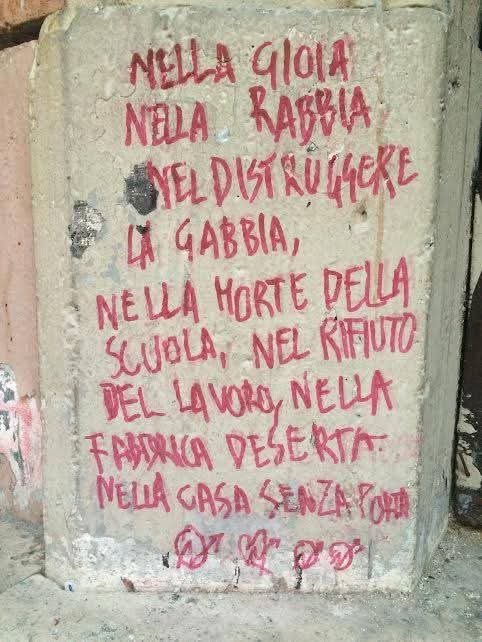 NELLA GIOIA
NELLA RABBIA
NEL DISTRUGGERE
LA GABBIA,
NELLA MORTE DELLA
SCUOLA, NEL RIFIUTO
DEL LAVORO, NELLA
FABBRICA DESERTA.
NELLA CASA SENZA PORTA